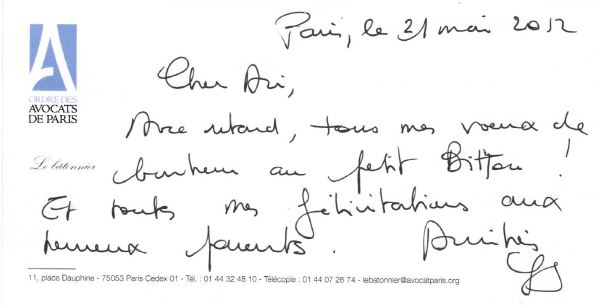 Paris, le 21 mai 2012
Cher Ari,
ORDRE DES
AVOCATS
DE PARIS
Avec retard, tous mes voeux de
Le bâtonnier
bonheur au petit Bitton !
Et toutes mes félicitations aux
heureux parents. Amitiés
11, place Dauphine - 75053 Paris Cedex 01 - Tél. : 01 44 32 48 10 - Télécopie : 01 44 07 26 74 - lebatonnier@avocatparis.org